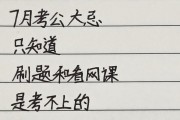 7月考公大忌
只知道
刷题和看网课
是考不上的